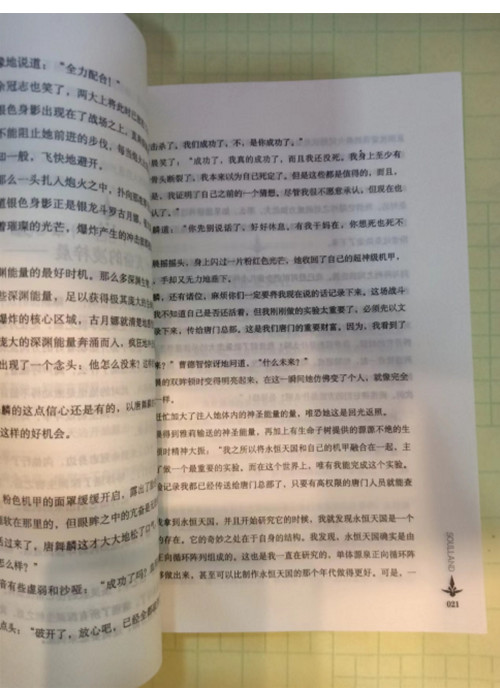 地说道：“全力配合！”
冠志也笑了，两大上将此时已
银色身影出现在了战场之上，真
不能阻止她前进的步伐，每当
知一般，飞快地避开。
那么一头扎入炮火之中，扑向那
银色身影正是银龙斗罗古月娜，
璀璨的光芒，爆炸产生的冲击
渊能量的最好时机。那么多深渊生
些深渊能量，足以获得极其庞大的
爆炸的核心区域，古月娜就清楚地
庞大的深渊能量奔涌而入，疯狂地
出现了一个念头：他怎么没来？这
麟的这点信心还是有的，以唐舞
这样的好机会。
粉色机甲的面罩缓缓开启，露出了
软在那里的，但眼眸之中的光
活过来了，唐舞麟这才大大地松了口气
怎么样？”
有些虚弱和沙哑：“成功了吗？
点头：“破开了，放心吧，已经全都
击杀了。我们成功了，不，是你成功了。”
笑了：“成功了，我真的成功了，而且我还没死。我身上至少有
骨头断裂了。我本来以为自己死定了。但是这也都是值得的，而且，
，我证明了自己之前的一个猜想。尽管我很不愿意承认，但现在也
认了。”
麟道：“你先别说话了，好好休息，有我干妈在，你想死也死不
摇摇头，身上闪过一片粉红色光芒，她收回了自己的超神级机甲，
，手却又无力地垂下。
，还有诸位，麻烦你们一定要将我现在说的话记录下来。这场战斗
我不知道自己是否还活着，但我刚刚做的实验太重要了，必须先以文
录下来，传给唐门总部，这是我们唐门的重要财富，因为，我看到了
？”曹德智惊讶地问道，“什么未来？”
的双眸顿时变得明亮起来，在这一瞬间她仿佛变了个人，就像完全
一样。
忙加大了往人她体内的神圣能量的量，唯恐她这是回光返照。
得到雅莉输送的神圣能量，再加上有生命子树提供的源源不绝的生
顿时精神大振：“我之所以将永恒天国和自己的机甲融合在一起，主
了做一个最重要的实验。而在这个世界上，唯有我能完成这个实验。
验记录我都已经传送给唐门总部了，只要有高权限的唐门人员就能查
拿到永恒天国，并且开始研究它的时候，我就发现永恒天国是一个
的存在，它的奇妙之处在于自身的结构。我发现，永恒天国确实是由
正向循环阵列组成的。这也是我一直在研究的，单体源泉正向循环阵
多做出来，甚至可以比制作永恒天国的那个年代做得更好。可是，一
SOULLAND
021